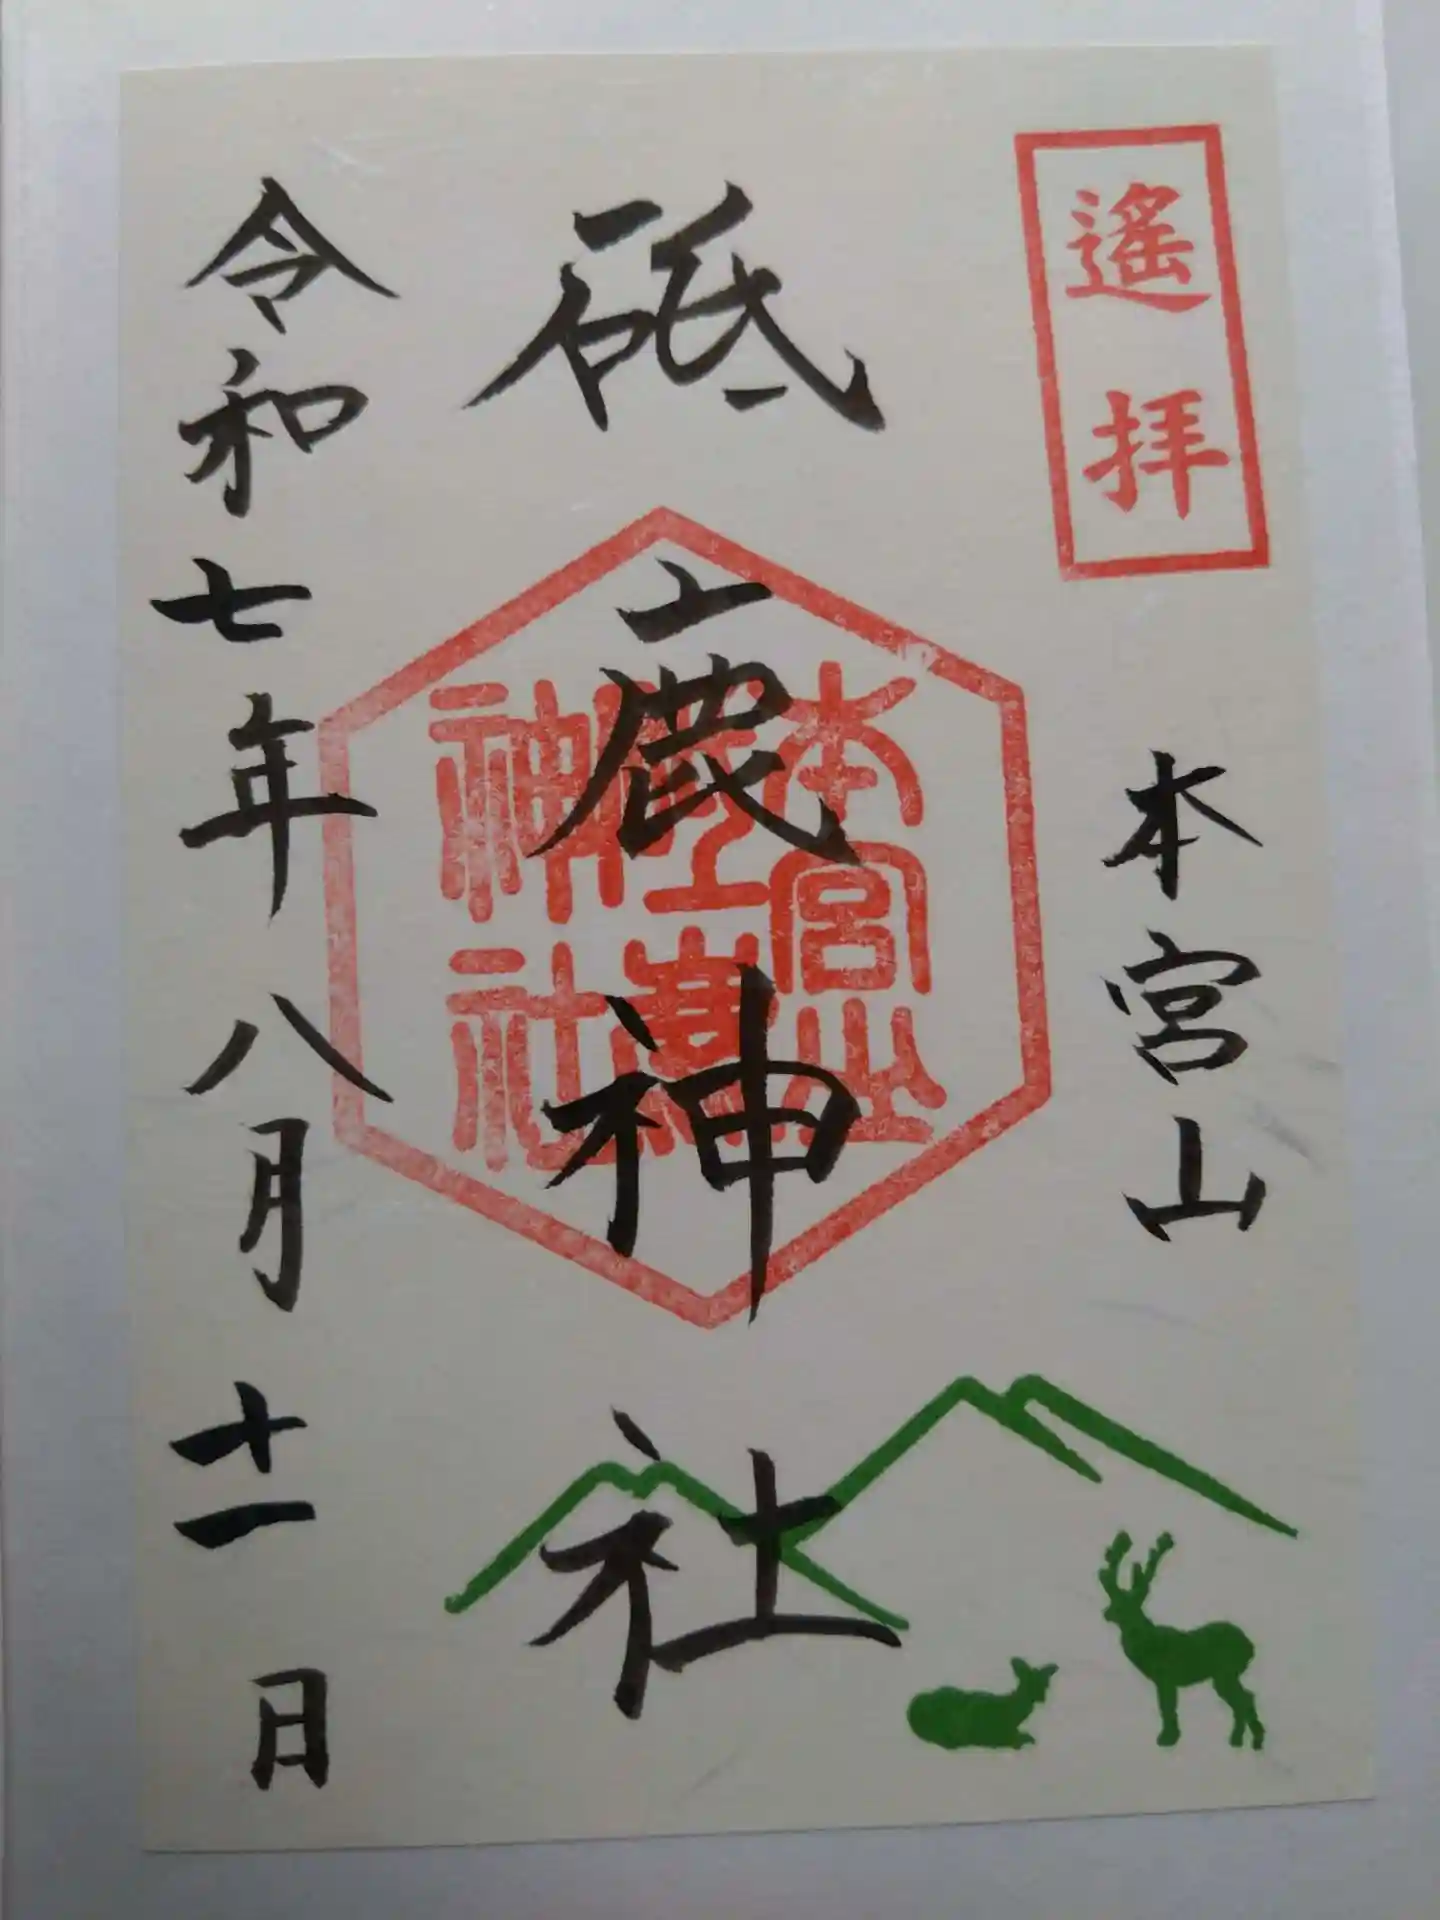 遙拝
本宮山
砥鹿神社
本宮山
砥鹿
神社
令和七年八月十一日